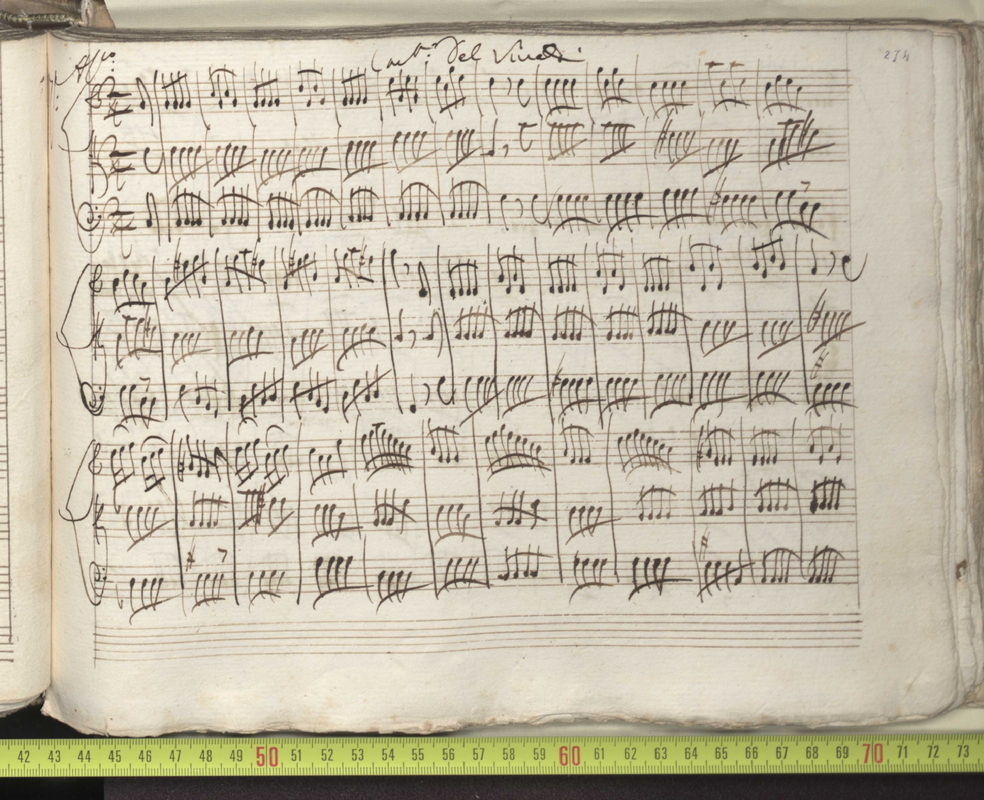 All.o Cant.a Del Vivaldi
254
7
7
7
42 43 44 45 46 47 48 49 50 51 52 53 54 55 56 57 58 59 60 61 62 63 64 65 66 67 68 69 70 71 72 73